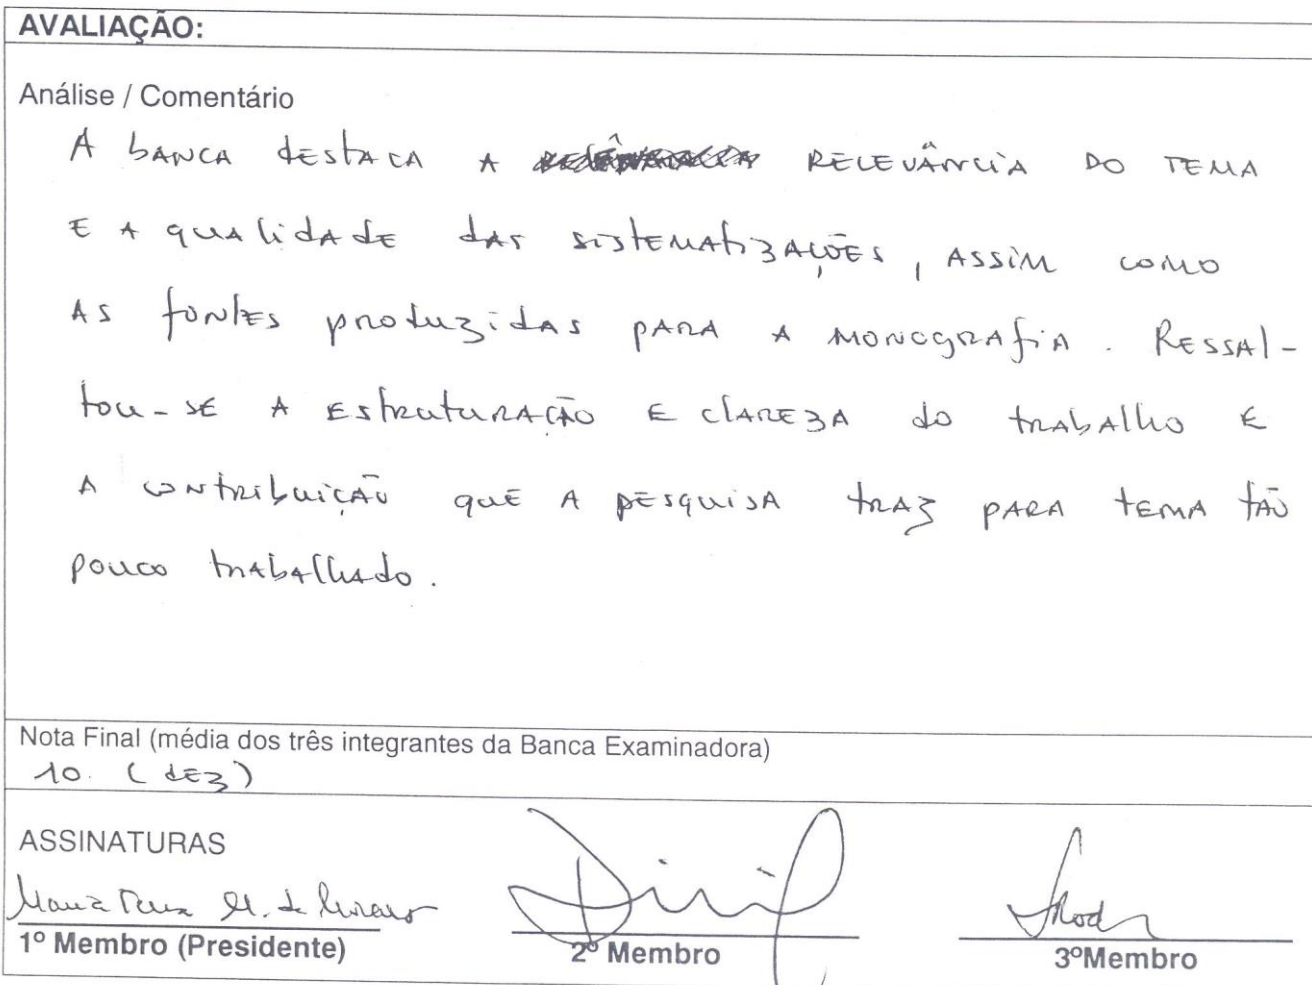 AVALIAÇÃO:
Análise / Comentário
A BANCA DESTACA A RELEVÂNCIA DO TEMA
E A QUALIDADE DAS SISTEMATIZAÇÕES, ASSIM COMO
AS FONTES PRODUZIDAS PARA A MONOGRAFIA. RESSAL-
TOU-SE A ESTRUTURAÇÃO E CLAREZA DO TRABALHO E
A CONTRIBUIÇÃO QUE A PESQUISA TRAZ PARA TEMA TÃO
POUCO TRABALHADO.
Nota Final (média dos três integrantes da Banca Examinadora)
10. (DEZ)
ASSINATURAS
1º Membro (Presidente)
2º Membro
3ºMembro